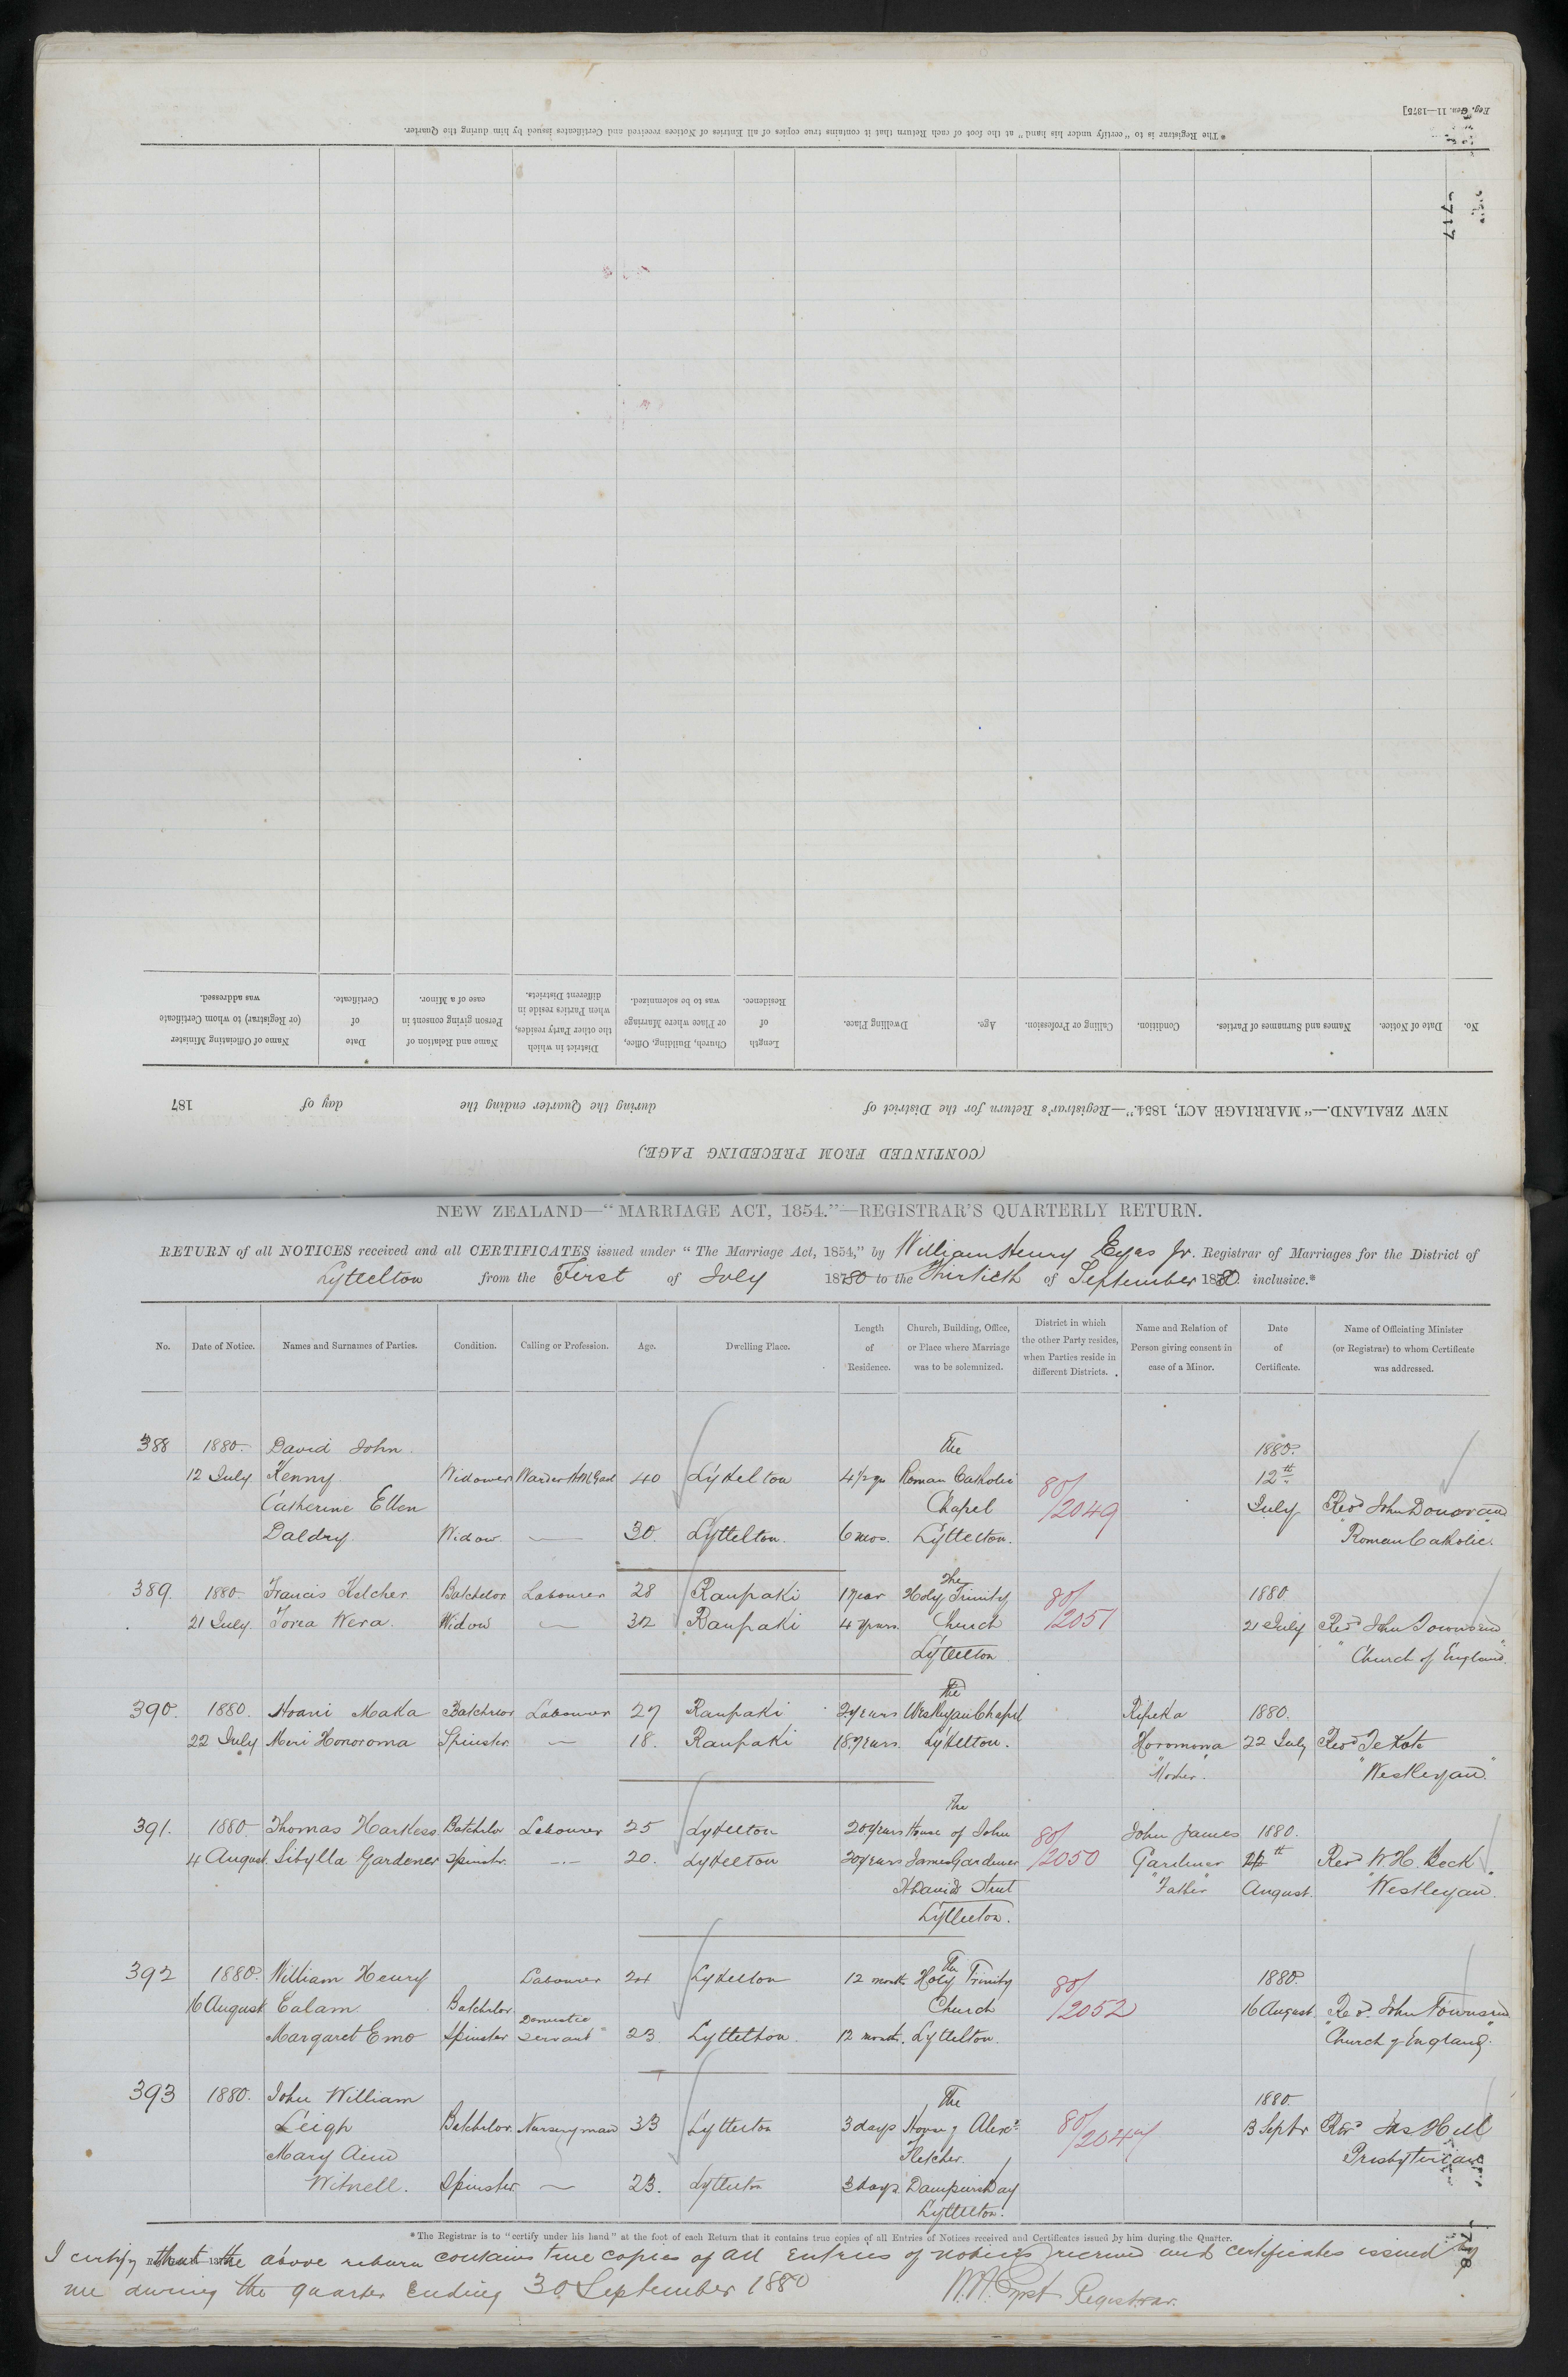 Reg. Gen. 11—1875]
* The Registrar is to "certify under his hand" at the foot of each Return that it contains true copies of all Entries of Notices received and Certificates issued by him during the Quarter.
717
No. Date of Notice. Names and Surnames of Parties. Condition. Calling or Profession. Age. Dwelling Place. Length of Residence. Church, Building, Office, or Place where Marriage was to be solemnized. District in which the other Party resides, when Parties reside in different Districts. Name and Relation of Person giving consent in case of a Minor. Date of Certificate. Name of Officiating Minister (or Registrar) to whom Certificate was addressed.
NEW ZEALAND.—"MARRIAGE ACT, 1854."—Registrar's Return for the District of during the Quarter ending the day of 187
(CONTINUED FROM PRECEDING PAGE.)
NEW ZEALAND—"MARRIAGE ACT, 1854."—REGISTRAR'S QUARTERLY RETURN.
RETURN of all NOTICES received and all CERTIFICATES issued under "The Marriage Act, 1854," by William Henry Eyes Jr. Registrar of Marriages for the District of
Lyttelton from the First of July 1880 to the Thirtieth of September 1880 inclusive.*
No. Date of Notice. Names and Surnames of Parties. Condition. Calling or Profession. Age. Dwelling Place. Length of Residence. Church, Building, Office, or Place where Marriage was to be solemnized. District in which the other Party resides, when Parties reside in different Districts. Name and Relation of Person giving consent in case of a Minor. Date of Certificate. Name of Officiating Minister (or Registrar) to whom Certificate was addressed.
388 1880. David John The 1880.
12 July Kenny Widower Warder HM Gaol 40 Lyttelton 4½ yrs Roman Catholic 80/ 12th
Catherine Ellen Chapel /2049 July Revd John Donovan
Daldry Widow — 30. Lyttelton. 6 mos. Lyttelton. "Roman Catholic."
The
389. 1880 Francis Kelcher Batchelor Labourer 28 Raupaki 1 year Holy Trinity 80/ 1880
21 July. Toria Wera. Widow — 32 Raupaki 4 years. Church /2051 21 July Revd John Townsend
Lyttelton "Church of England."
The
390. 1880. Hoani Maka Batchelor Labourer 27 Raupaki 2 years Wesleyan Chapel Ripeka 1880.
22 July Meri Hororoma Spinster. — 18. Raupaki 18 years. Lyttelton. Horomona 22 July Revd Te Kote
"Mother". "Wesleyan."
The
391. 1880 Thomas Harkess Batchelor Labourer 25 Lyttelton 20 years House of John 80/ John James 1880.
4 August. Sibylla Gardener Spinster. — 20. Lyttelton 20 years James Gardener /2050 Gardener th Revd W. H. Beck
St Davids Street "Father" August. "Westleyan".
Lyttelton.
The
392 1880. William Henry Labourer 24 Lyttelton 12 months Holy Trinity 80/ 1880.
16 August Ealam Batchelor Domestic Church /2052 16 August Revd. John Townsend
Margaret Emo Spinster Servant 23. Lyttelton. 12 months. Lyttelton. "Church of England."
393 1880. John William The 1880.
Leigh Batchelor. Nurseryman 33 Lyttelton 3 days House of Alexr 80/ 3 Septr Revd Jas Hill
Mary Ann Fletcher. /2047 Presbyterian
Witnell. Spinster — 23. Lyttelton 3 days Dampiers Bay
Lyttelton.
* The Registrar is to "certify under his hand" at the foot of each Return that it contains true copies of all Entries of Notices received and Certificates issued by him during the Quarter.
I certify that the above return contains true copies of all entries of notices received and certificates issued by
me during the quarter ending 30 September 1880 Registrar.